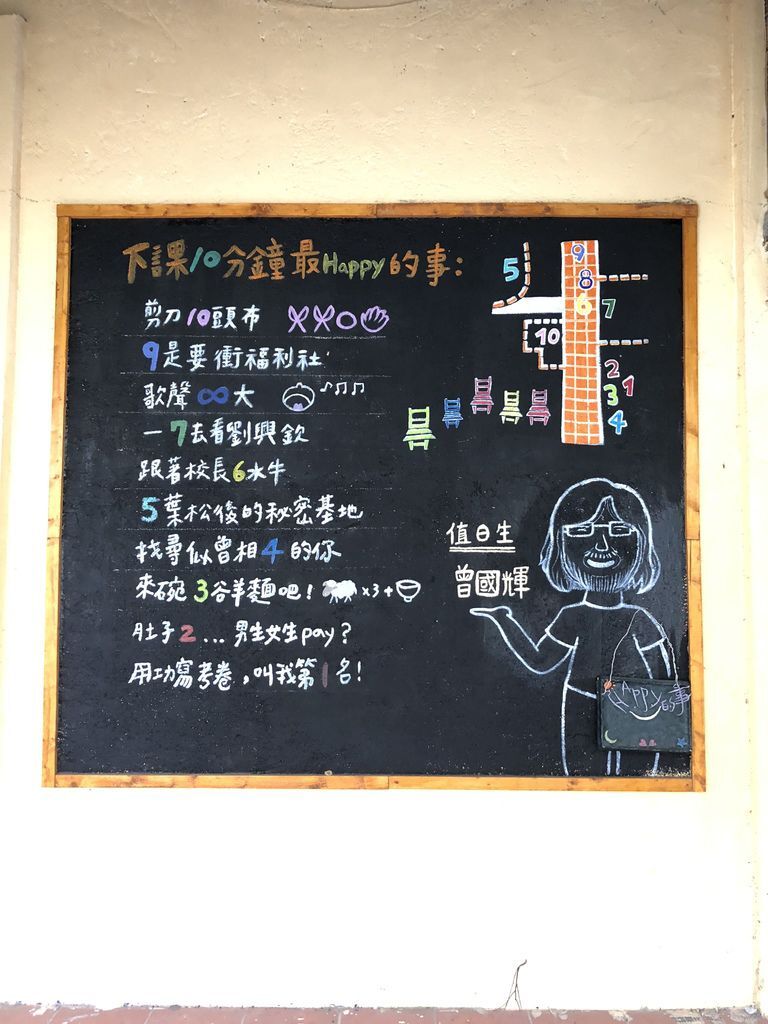 下課10分鐘最Happy的事:
剪刀10頭布
9是要衝福利社
歌聲∞大
一7去看劉興欽
跟著校長6水牛
5葉松後的秘密基地
找尋似曾相4的你
來碗3谷羊麵吧! x3+
肚子2...男生女生pay?
用功寫考卷,叫我第1名!
9
5
8
6
7
10
2
1
3
4
值日生
曾國輝
HAPPY的事